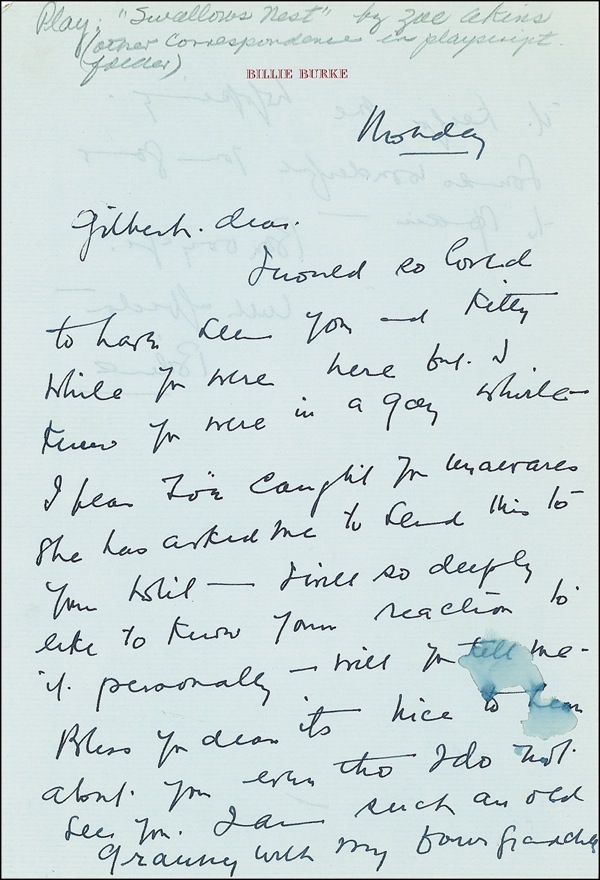 Play: "Swallows Nest" by Zoe Akins
(other correspondence in playscript
folder)
BILLIE BURKE
Monday
Gilbert. dear.
I would so loved
to have seen you and Kitty
while you were here but. I
know you were in a gay whirl—
I fear Zöe caught you unawares
She has asked me to send this to
you — I will so deeply
like to know your reaction to
it. personally — will you tell me -
Bless you dear its nice to hear
about. you even tho I do not.
see you. I am such an old
Granny with my four grandchil